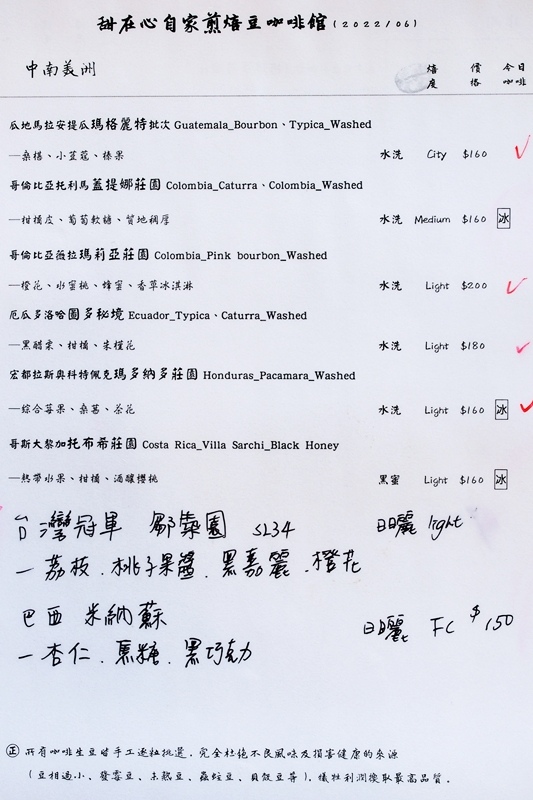 甜在心自家煎焙豆咖啡館(2022/06)
中南美洲 焙度 價格 今日咖啡
瓜地馬拉安提瓜瑪格麗特批次 Guatemala_Bourbon、Typica_Washed
—桑椹、小荳蔻、榛果 水洗 City $160
哥倫比亞托利馬蓋提娜莊園 Colombia_Caturra、Colombia_Washed
—柑橘皮、葡萄軟糖、質地稠厚 水洗 Medium $160 冰
哥倫比亞薇拉瑪莉亞莊園 Colombia_Pink bourbon_Washed
—橙花、水蜜桃、蜂蜜、香草冰淇淋 水洗 Light $200
厄瓜多洛哈圖多秘境 Ecuador_Typica、Caturra_Washed
—黑醋栗、柑橘、朱槿花 水洗 Light $180
宏都拉斯奧科特佩克瑪多納多莊園 Honduras_Pacamara_Washed
—綜合莓果、桑葚、茶花 水洗 Light $160 冰
哥斯大黎加托布希莊園 Costa Rica_Villa Sarchi_Black Honey
—熱帶水果、柑橘、酒釀櫻桃 黑蜜 Light $160 冰
台灣冠軍 鄒築園 SL34 日曬 light
—荔枝.桃子果醬.黑嘉麗.橙花
巴西 米納蘇 日曬 FC $150
—杏仁.焦糖.黑巧克力
正 所有咖啡生豆皆手工逐粒挑選,完全杜絕不良風味及損害健康的來源
(豆相過小、發霉豆、未熟豆、蟲蛀豆、貝殼豆等),犧牲利潤換取最高品質。